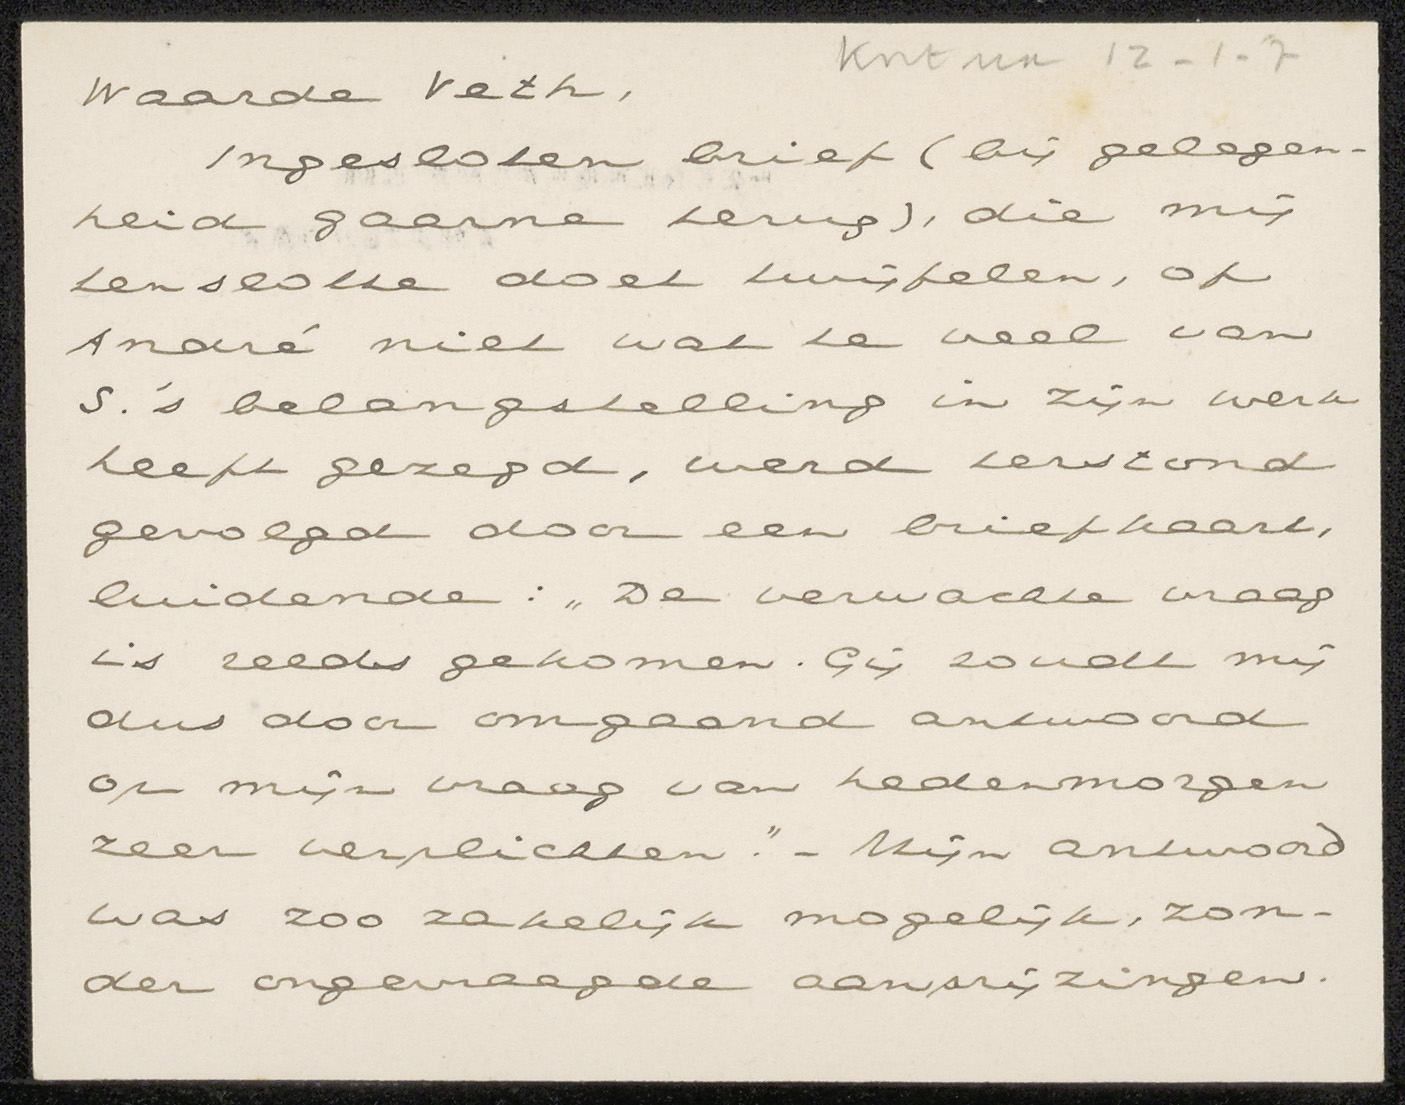 12-1-7
Waarde Veth,
Ingesloten brief (bij gelegen-
heid gaarne terug), die mij
tenslotte doet twijfelen, of
André niet wat te veel van
S.'s belangstelling in zijn werk
heeft gezegd, werd terstond
gevolgd door een briefkaart,
luidende: „De verwachte vraag
is reeds gekomen. Gij zoudt mij
dus door omgaand antwoord
op mijn vraag van hedenmorgen
zeer verplichten." - Mijn antwoord
was zoo zakelijk mogelijk, zon-
der ongevraagde aanprijzingen.